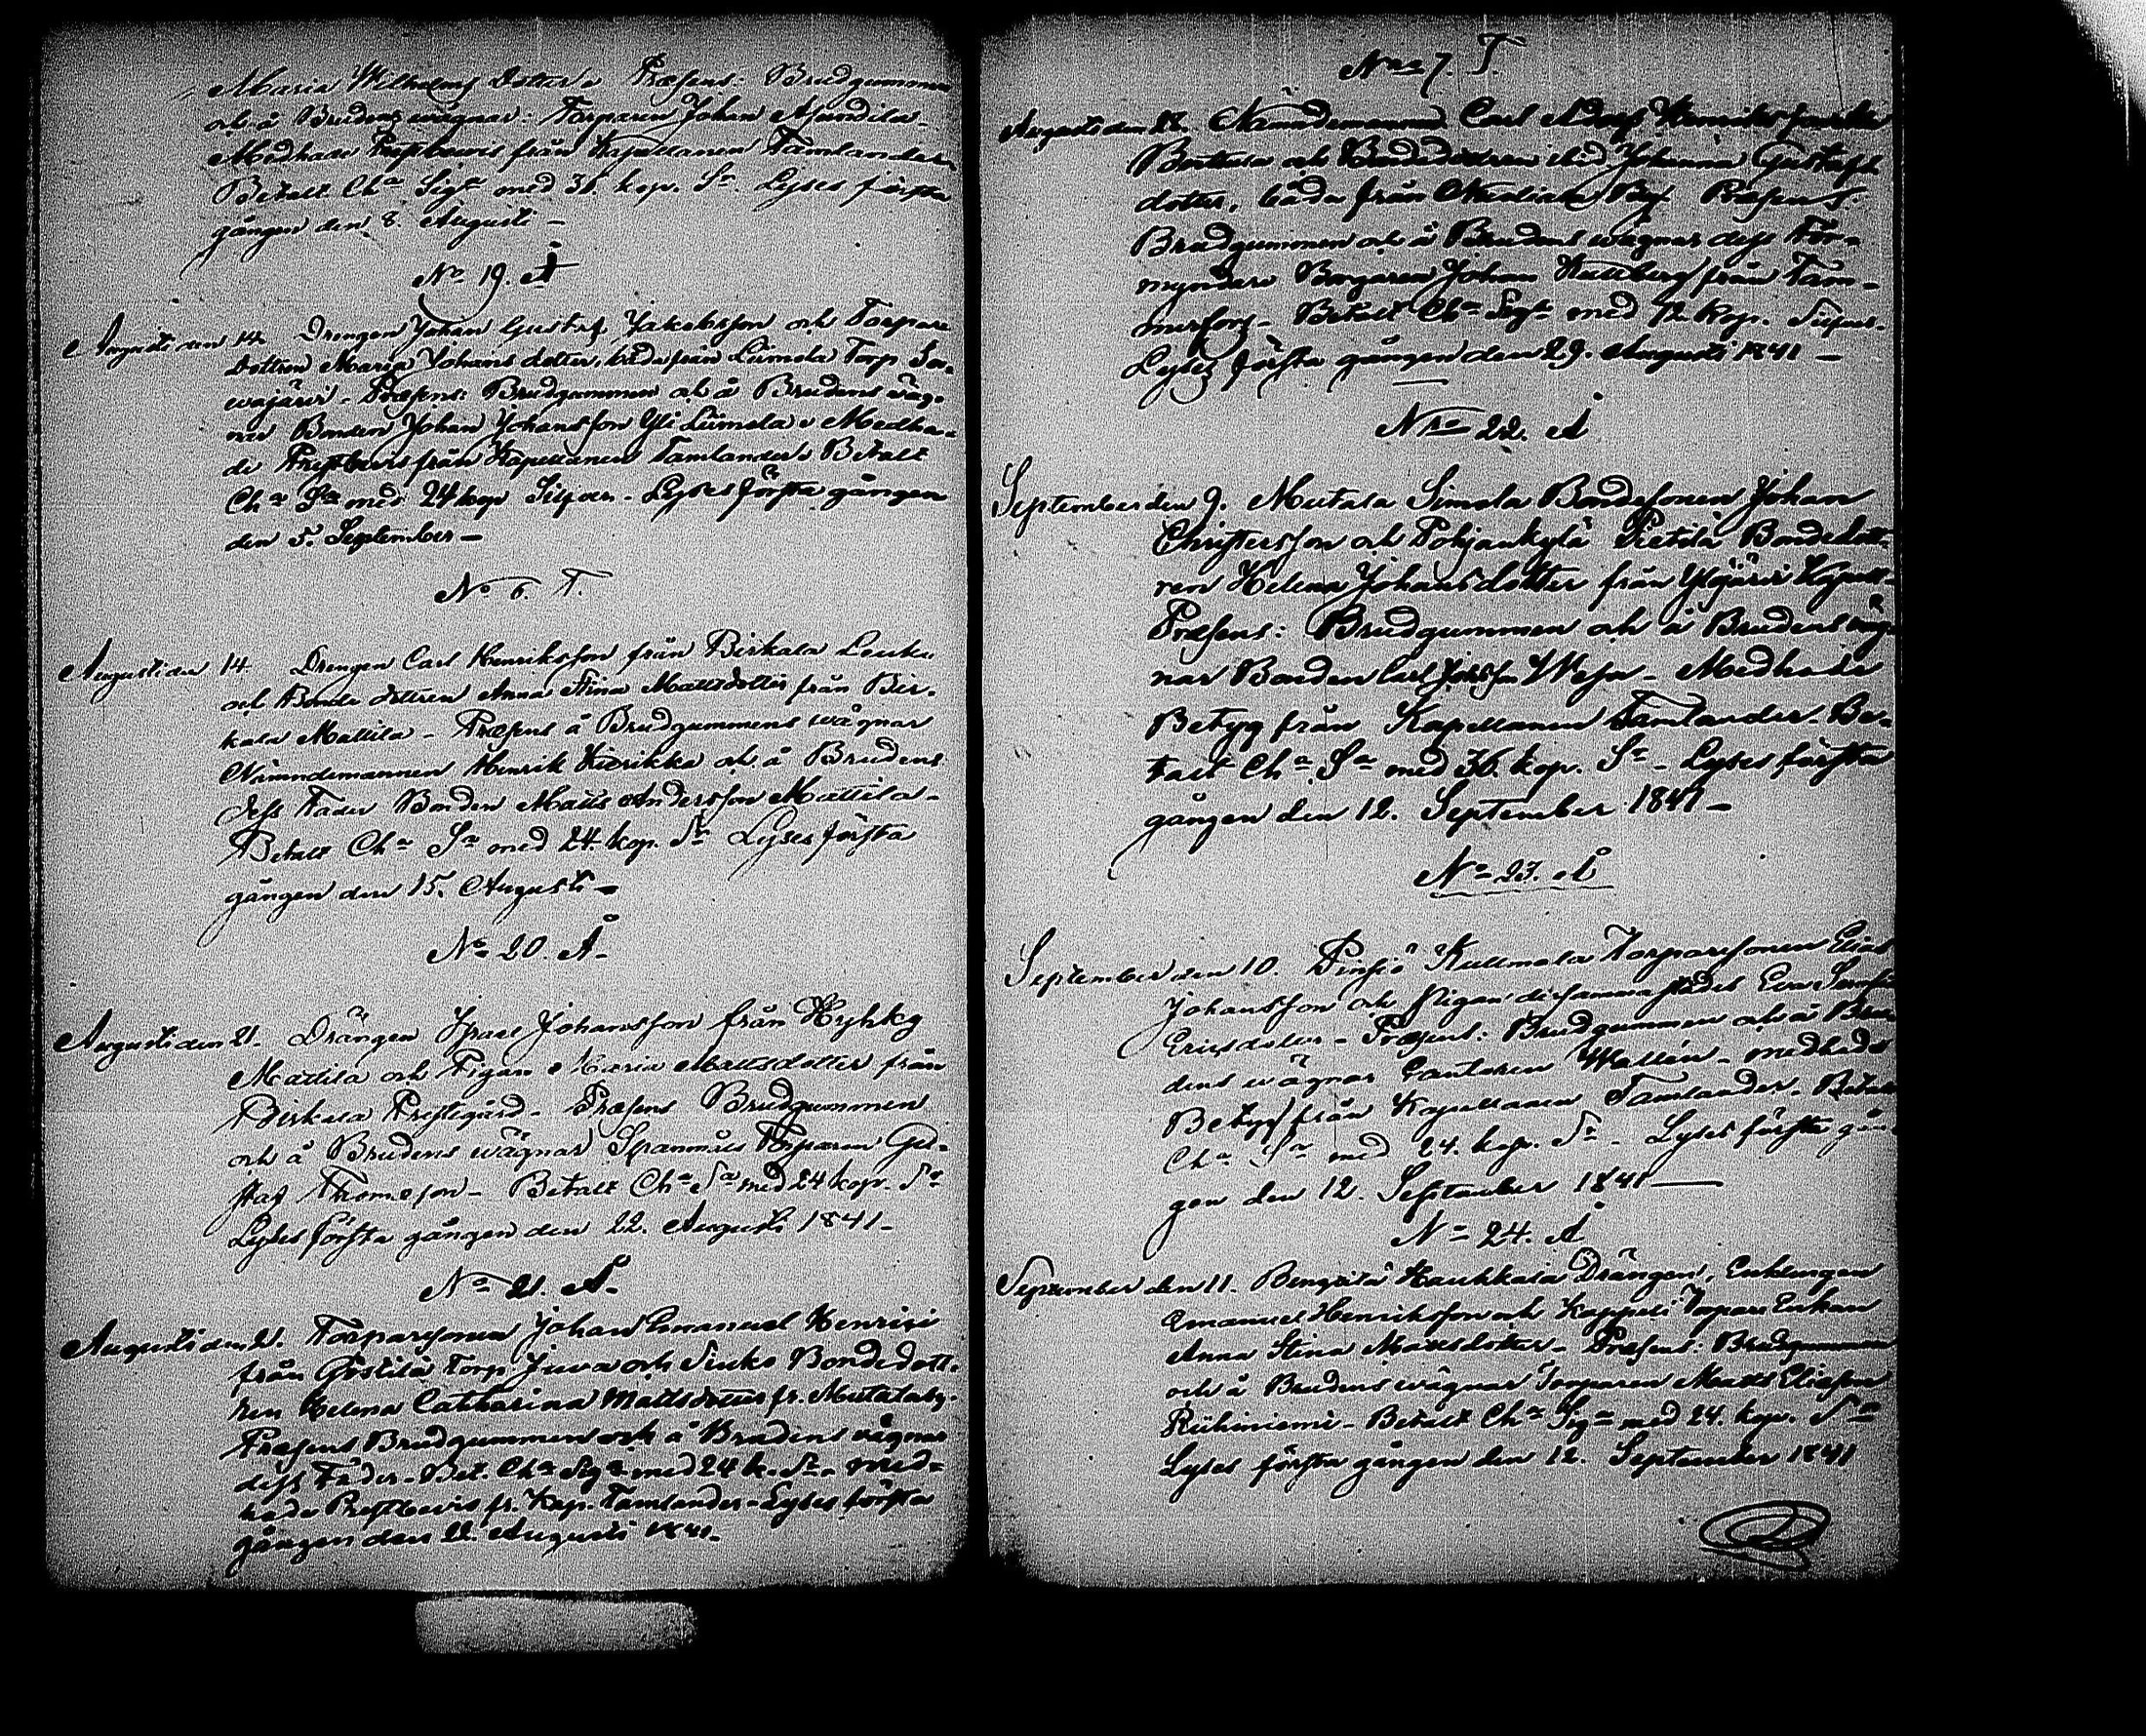 Maria Wilhelms Dotter. Præsens: Brudgummen
och å Brudens wägnar: Torparen Johan
Medhade Prestbewis från Kapellanen Tamlander
Betalt Cha Sigta med 36. kop. Sr. Lyses första
gången den 8. Augusti –
No 19. Å
Augusti den 14. Drengen Johan Gustaf Jakobsson och Torpare
dottren Maria Johans dotter, båda från Liimola Torp Sa-
wajärvi – Præsens: Brudgummen och å Brudens wäg-
nar Bonden Johan Johansson Yli Liimola – Medha-
de Prestbewis från Kapellanen Tamlander. Betalt
Cha Sa med 24 kop Silfver – Lyses första gången
den 5. September –
No 6. T.
Augusti den 14. Drengen Carl Henriksson från Birkala
och Bonde dottren Anna Stina Mattsdotter från Bir-
kala Mattila – Præsens å Brudgummens wägnar
Nämndemannen Henrik Kierikka och å Brudens
dess Fader Bonden Matts Andersson Mattila –
Betalt Cha Sa med 24 kop. Sr Lyses första
gången den 15. Augusti –
No 20. Å –
Augusti den 21. Drängen Isaac Johansson från Hyhky
Mattila och Pigan Maria Mattsdotter från
Birkala Prestgård – Præsens Brudgummen
och å Brudens wägnar Spannmåls Torparen Gu-
staf Thomeson – Betalt Cha Sa med 24 kop. Sr
Lyses första gången den 22. Augusti 1841 –
No 21. Å –
Augusti den 21. Torparsonen Johan Emanuel Henrici
från Torp Juwa och Siuko Bondedott-
ren Helena Catharina Mattsdotter fr. Mutala by.
Præsens Brudgummen och å Brudens wägnar
dess Fader – Bet. Cha Sig: med 24 k. Sr. – med-
hade Prestbewis fr. Kap. Tamlander – Lyses första
gången den 22. Augusti 1841 –
Nro 7. T.
Augusti den 28. Nämndemannen Carl Henriksson
och Bondedottren ibid Johanna Gustafs
dotter, båda från By. Præsens:
Brudgummen och å Brudens wägnar dess För-
myndare Borgaren Johan från Tam-
merfors – Betalt Cha Sigta med 72 kop. Silfver.
Lyses första gången den 29. Augusti 1841 –
Nro 22. Å
September den 9. Mutala Simola Bondesonen Johan
Christersson och Pohjankylä Pietilä Bondedott-
ren Helena Johansdotter från Ylöjärvi Kapell
Præsens: Brudgummen och å Brudens wäg-
nar Bonden Carl – Medhade
Betyg från Kapellanen Tamlander – Be-
talt Cha Sa med 36. kop. Sr – Lyses första
gången den 12. September 1841 –
No 23. Å
September den 10. Pinsiö Kullmala Torparsonen Elias
Johansson och Pigan dersammastädes Eva
Ericsdotter – Præsens: Brudgummen och å Bru-
dens wägnar Cantoren Wallén – medhade
Betyg från Kapellanen Tamlander – Betalt
Cha Sa med 24. kop. Sr – Lyses första gån-
gen den 12. September 1841 –
No 24. Å
September den 11. Drängen, Enklingen
Emanuel Henriksson och Torpare Enkan
Anna Stina Mattsdotter – Præsens: Brudgummen
och å Brudens wägnar Torparen Matts Eliasson
Riihiniemi – Betalt Cha Sig:ta med 24. kop. Sr
Lyses första gången den 12. September 1841